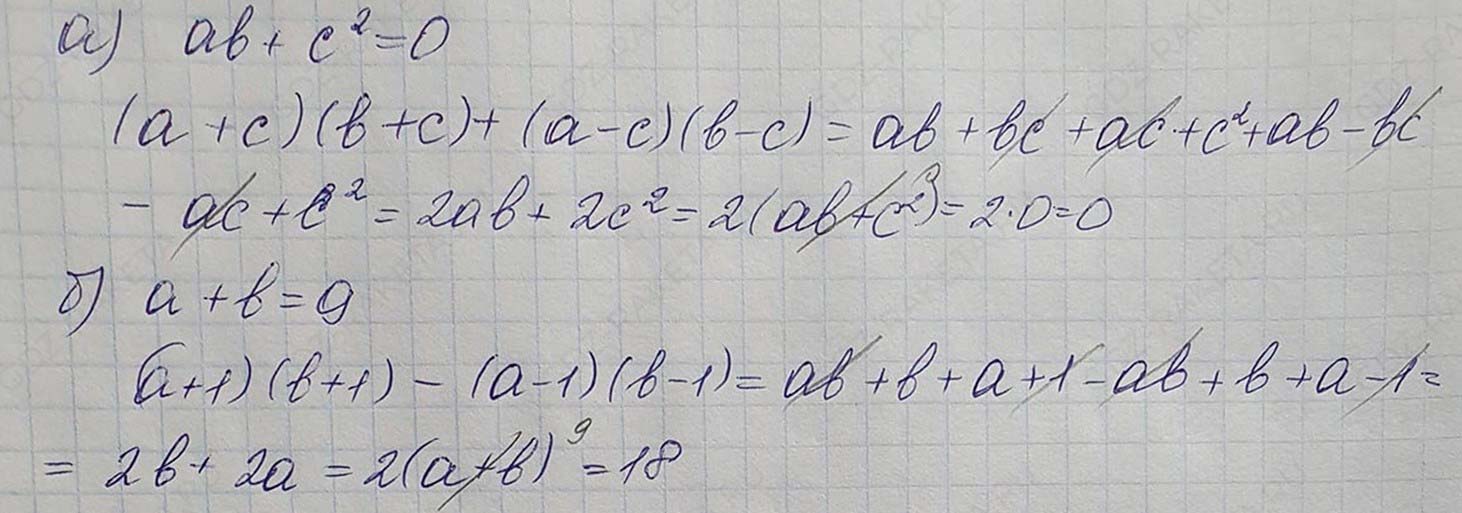 а) ab + c² = 0
(a + c)(b + c) + (a - c)(b - c) = ab + bc + ac + c² + ab - bc
- ac + c² = 2ab + 2c² = 2(ab + c²)⁰ = 2·0 = 0
б) a + b = 9
(a + 1)(b + 1) - (a - 1)(b - 1) = ab + b + a + 1 - ab + b + a - 1 =
= 2b + 2a = 2(a + b)⁹ = 18